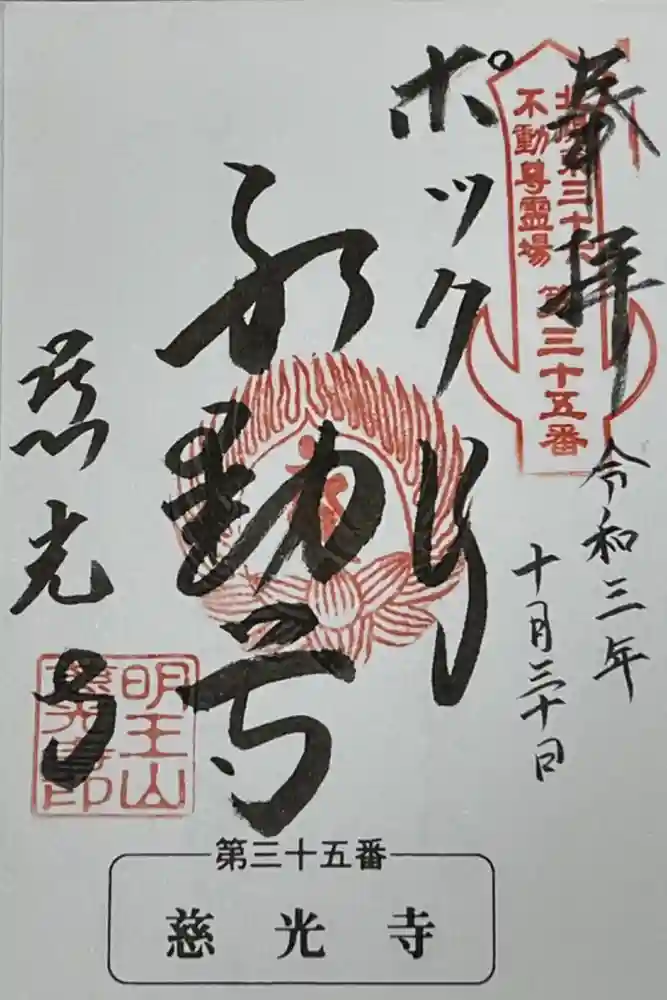 奉拝
令和三年
十月三十日
不動尊霊場
第三十五番
ポックリ
不動尊
慈光寺
明王山
慈光寺印
第三十五番
慈光寺